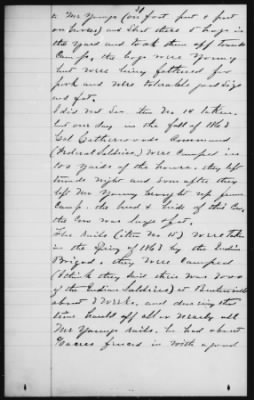 to Mr Youngs (on foot part & part
on horses) and shot these 5 hogs in
the yard and took them off towards
Camp, the hogs were Young
but were being fattened for
pork and were tolerable good size
and fat.
I did not see item No. 14 taken.
but one day in the fall of 1863
Col Catherwood Command
(Federal Soldiers) were camped in
100 yards of the house. they left
towards night and soon after they
left Mr Young brought up from
Camp. the head & hide of this Cow.
the Cow was large & fat.
The rails (item No 15) were taken
in the Spring of 1863 by the Indian
Brigade. they were camped
(I think they said there was 2000
of the Indian Soldiers) at Bentonville
about 3 weeks. and during this
time hauled off all or nearly all
Mr Youngs rails. he had about
acres fenced in with a good